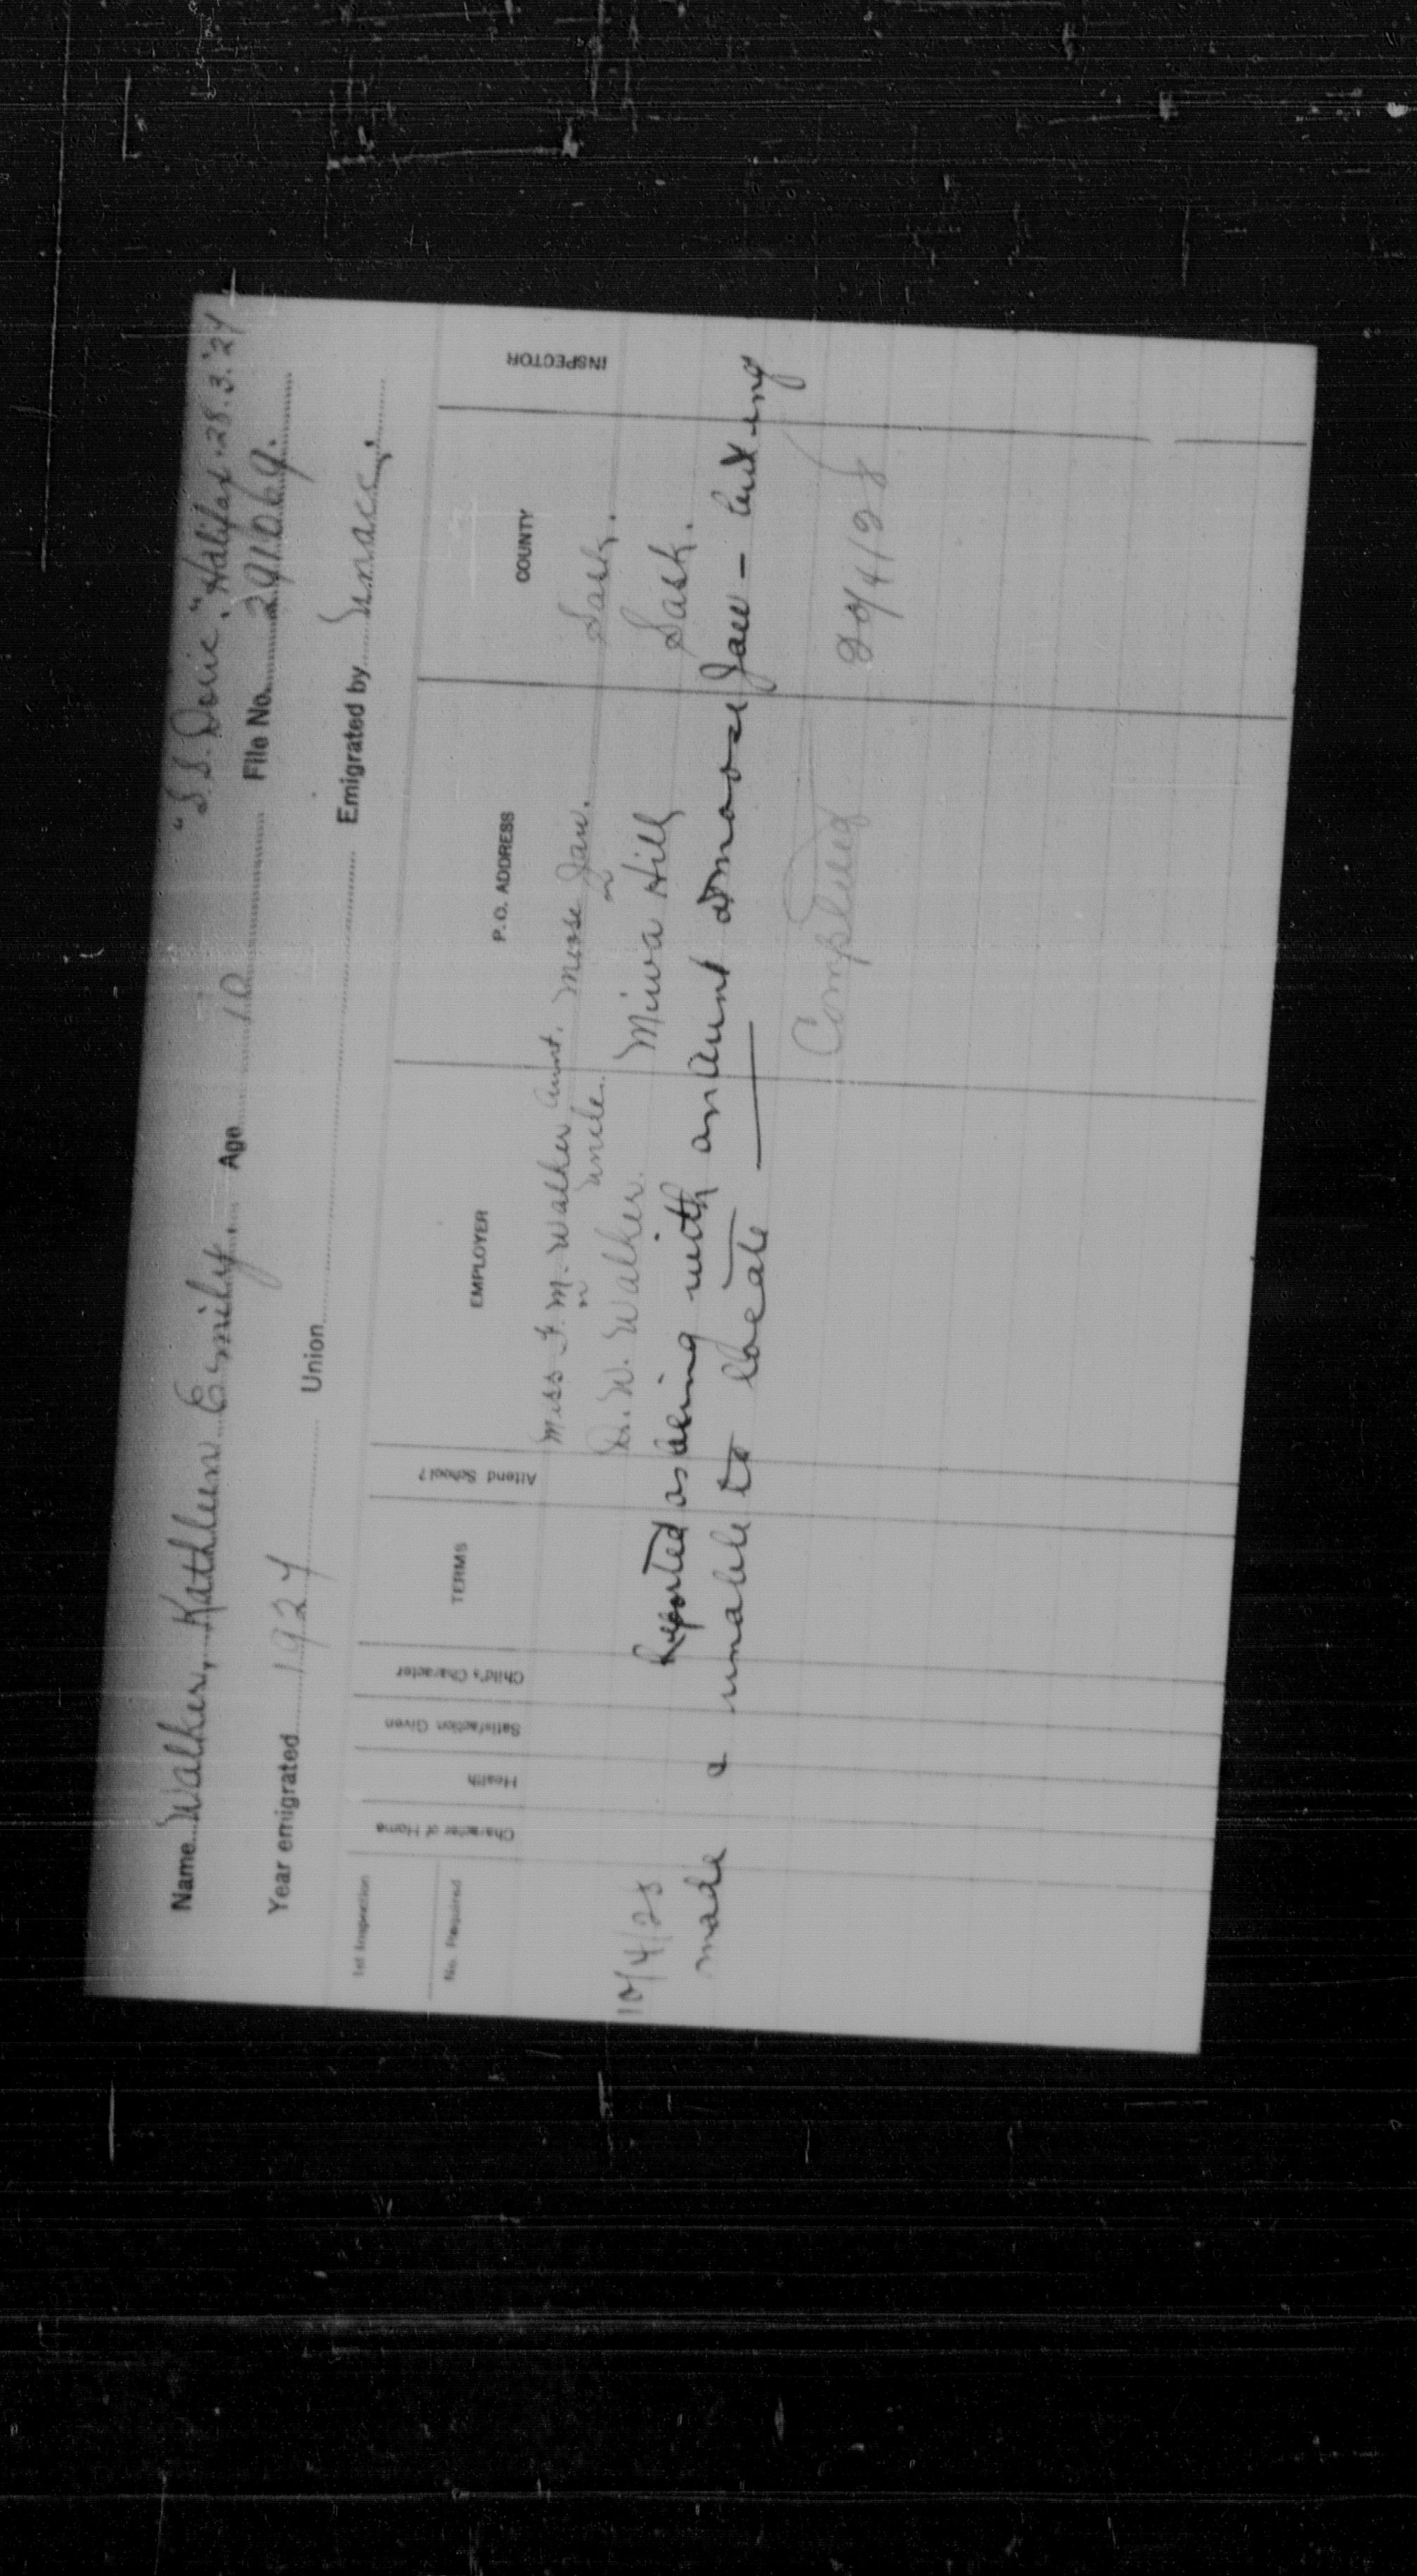 "S.S. Doric". Halifax. 28.3.'24
Name Walker, Kathleen Emily. Age 10 File No. 291069.
Year emigrated 1924 Union Emigrated by
1st Inspection
No. Required
Character of Home Health Satisfaction Given Child's Character TERMS Attend School? EMPLOYER P.O. ADDRESS COUNTY INSPECTOR
Miss F. M. Walker Aunt. Moose Jaw. Sask.
" " Uncle. "
D. W. Walker. Miwa Hill Sask.
10/4/28 Reported as being with an Aunt at Moose Jaw - but enq
made & unable to locate
Completed 20/4/28